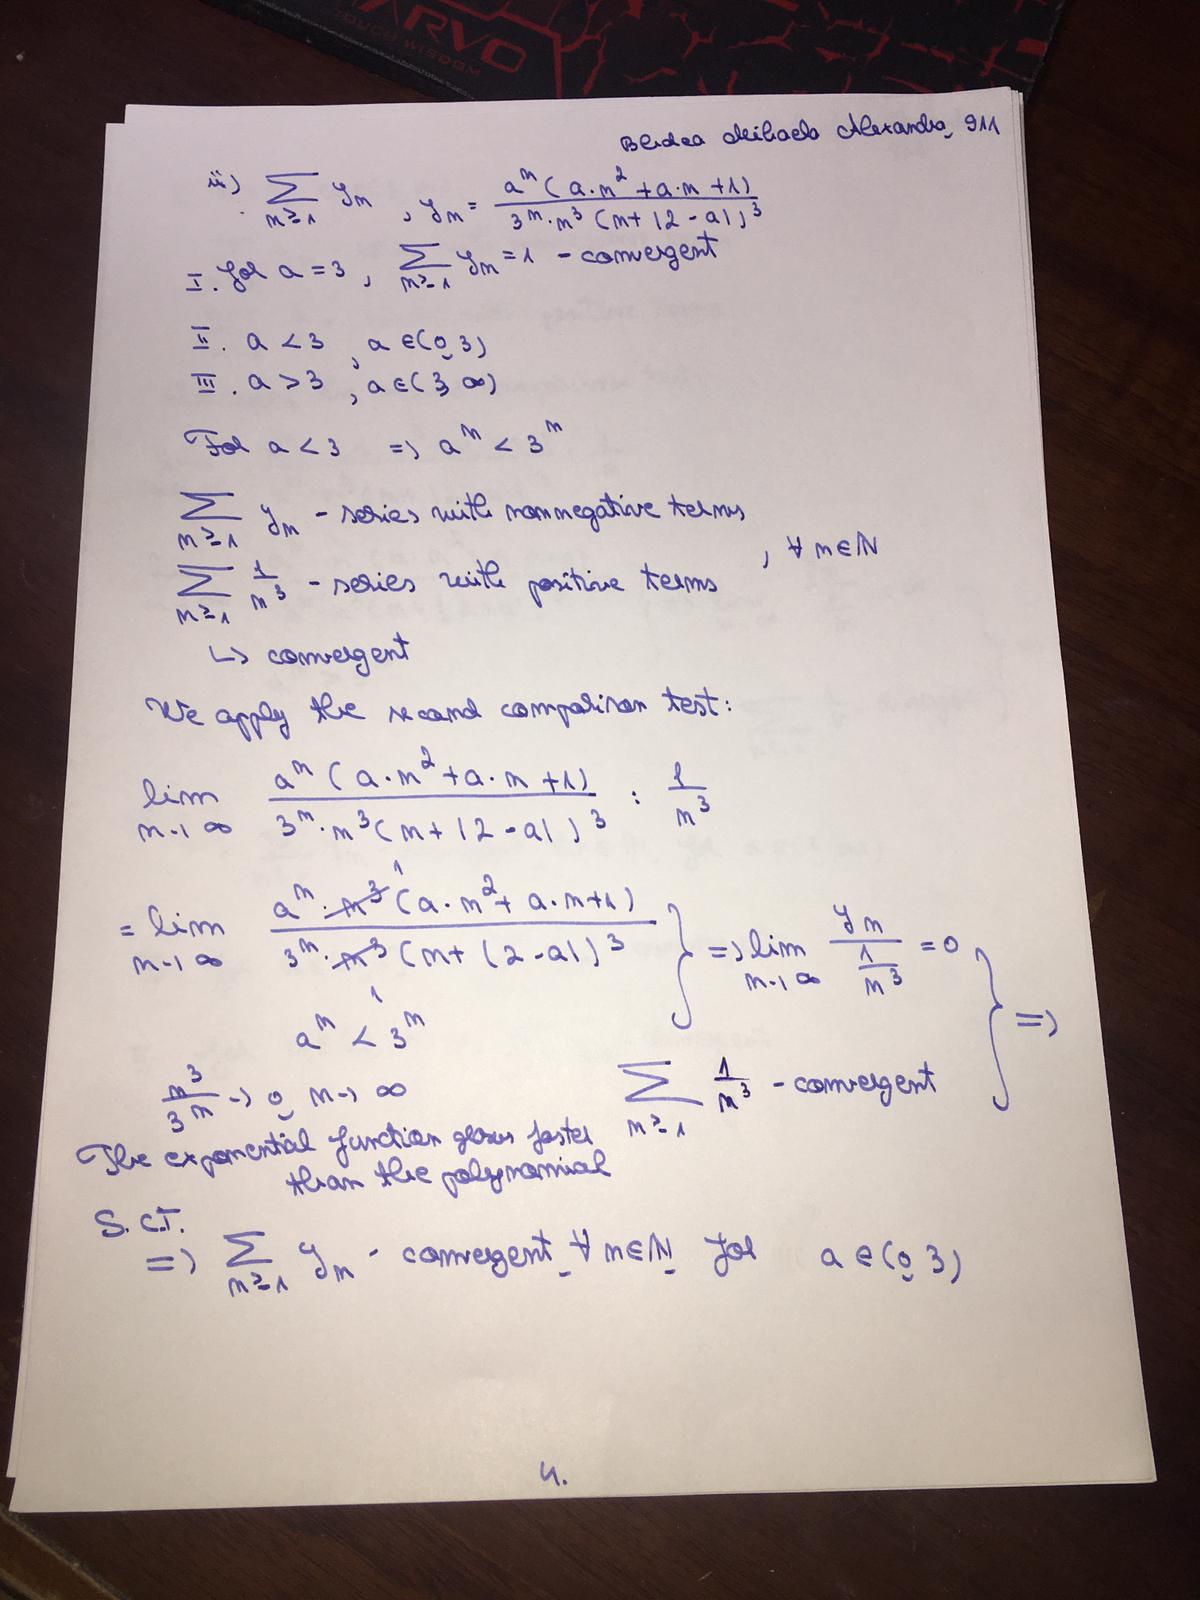 ARVO
TOUCH WISDOM
Alexandra, 911
ii) ∑_{n≥1} y_n , y_n = a^n (a·n^2 + a·n + 1) / 3^n · n^3 (n + |2 - a|)^3
I. for a = 3, ∑_{n≥1} y_n = 1 - convergent
II. a < 3, a ∈ (0, 3)
III. a > 3, a ∈ (3, ∞)
For a < 3 => a^n < 3^n
∑_{n≥1} y_n - series with nonnegative terms
, ∀ n ∈ ℕ
∑_{n≥1} 1/n^3 - series with positive terms
↳ convergent
We apply the second comparison test:
lim_{n→∞} a^n (a·n^2 + a·n + 1) / 3^n · n^3 (n + |2 - a|)^3 : 1/n^3
= lim_{n→∞} a^n · n^3 (a·n^2 + a·n + 1) / 3^n · n^3 (n + |2 - a|)^3 } => lim_{n→∞} y_n / (1/n^3) = 0 } =>
a^n < 3^n
n^3/3^n → 0, n → ∞ ∑_{n≥1} 1/n^3 - convergent
The exponential function grows faster
than the polynomial
S.C.T.
=> ∑_{n≥1} y_n - convergent, ∀ n ∈ ℕ, for a ∈ (0, 3)
4.